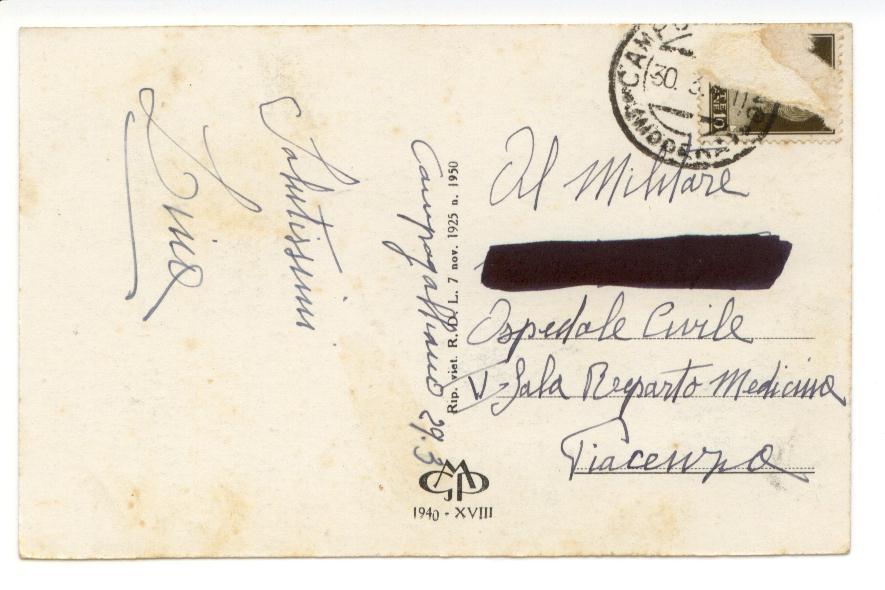 Lina
Salutissimi
Campogalliano 29.3
Rip. viet. R. D. L. 7 nov. 1925 n. 1950
GMP
1940 - XVIII
30. 3.
Al Militare
Ospedale Civile
V Sala Reparto Medicina
Piacenza